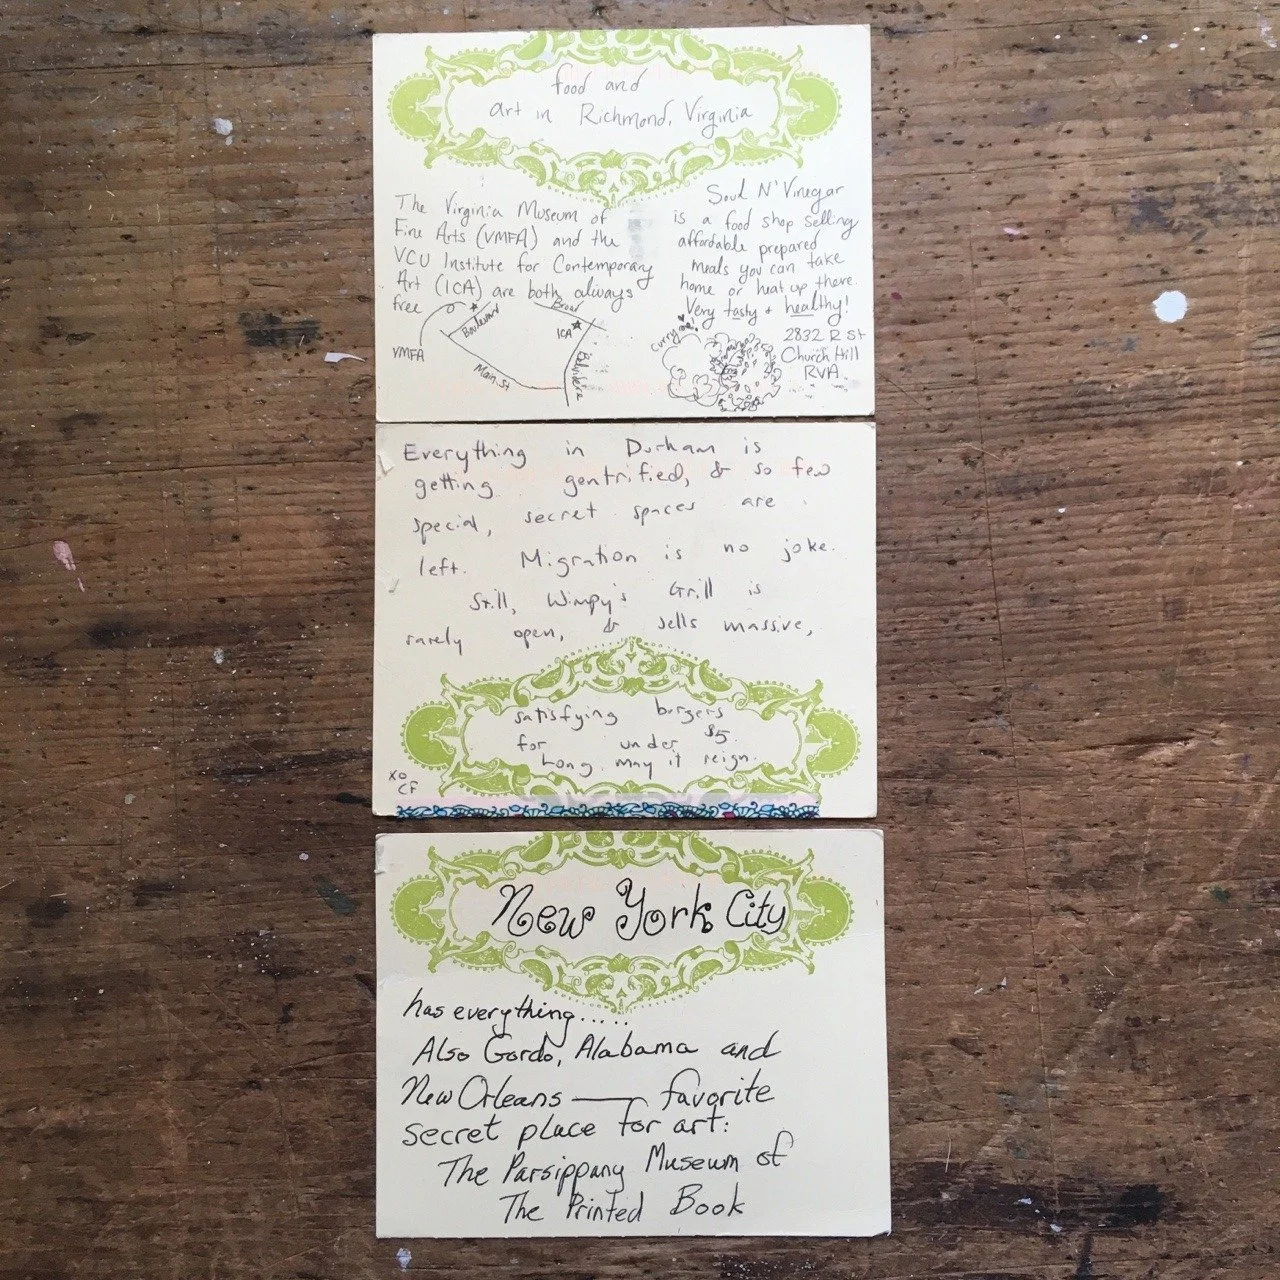 food and
art in Richmond, Virginia
The Virginia Museum of
Fine Arts (VMFA) and the
VCU Institute for Contemporary
Art (ICA) are both always
free
VMFA
Boulevard
Main St
Broad
ICA
Belvidere
Soul N' Vinegar
is a food shop selling
affordable prepared
meals you can take
home or heat up there.
Very tasty + healthy!
curry me!
2832 R St
Church Hill
RVA
Everything in Durham is
getting gentrified, & so few
special, secret spaces are
left. Migration is no joke.
Still, Wimpy's Grill is
rarely open, & sells massive,
satisfying burgers
for under $5.
Long may it reign.
XO
CF
New York City
has everything.....
Also Gordo, Alabama and
New Orleans — favorite
secret place for art:
The Parsippany Museum of
The Printed Book